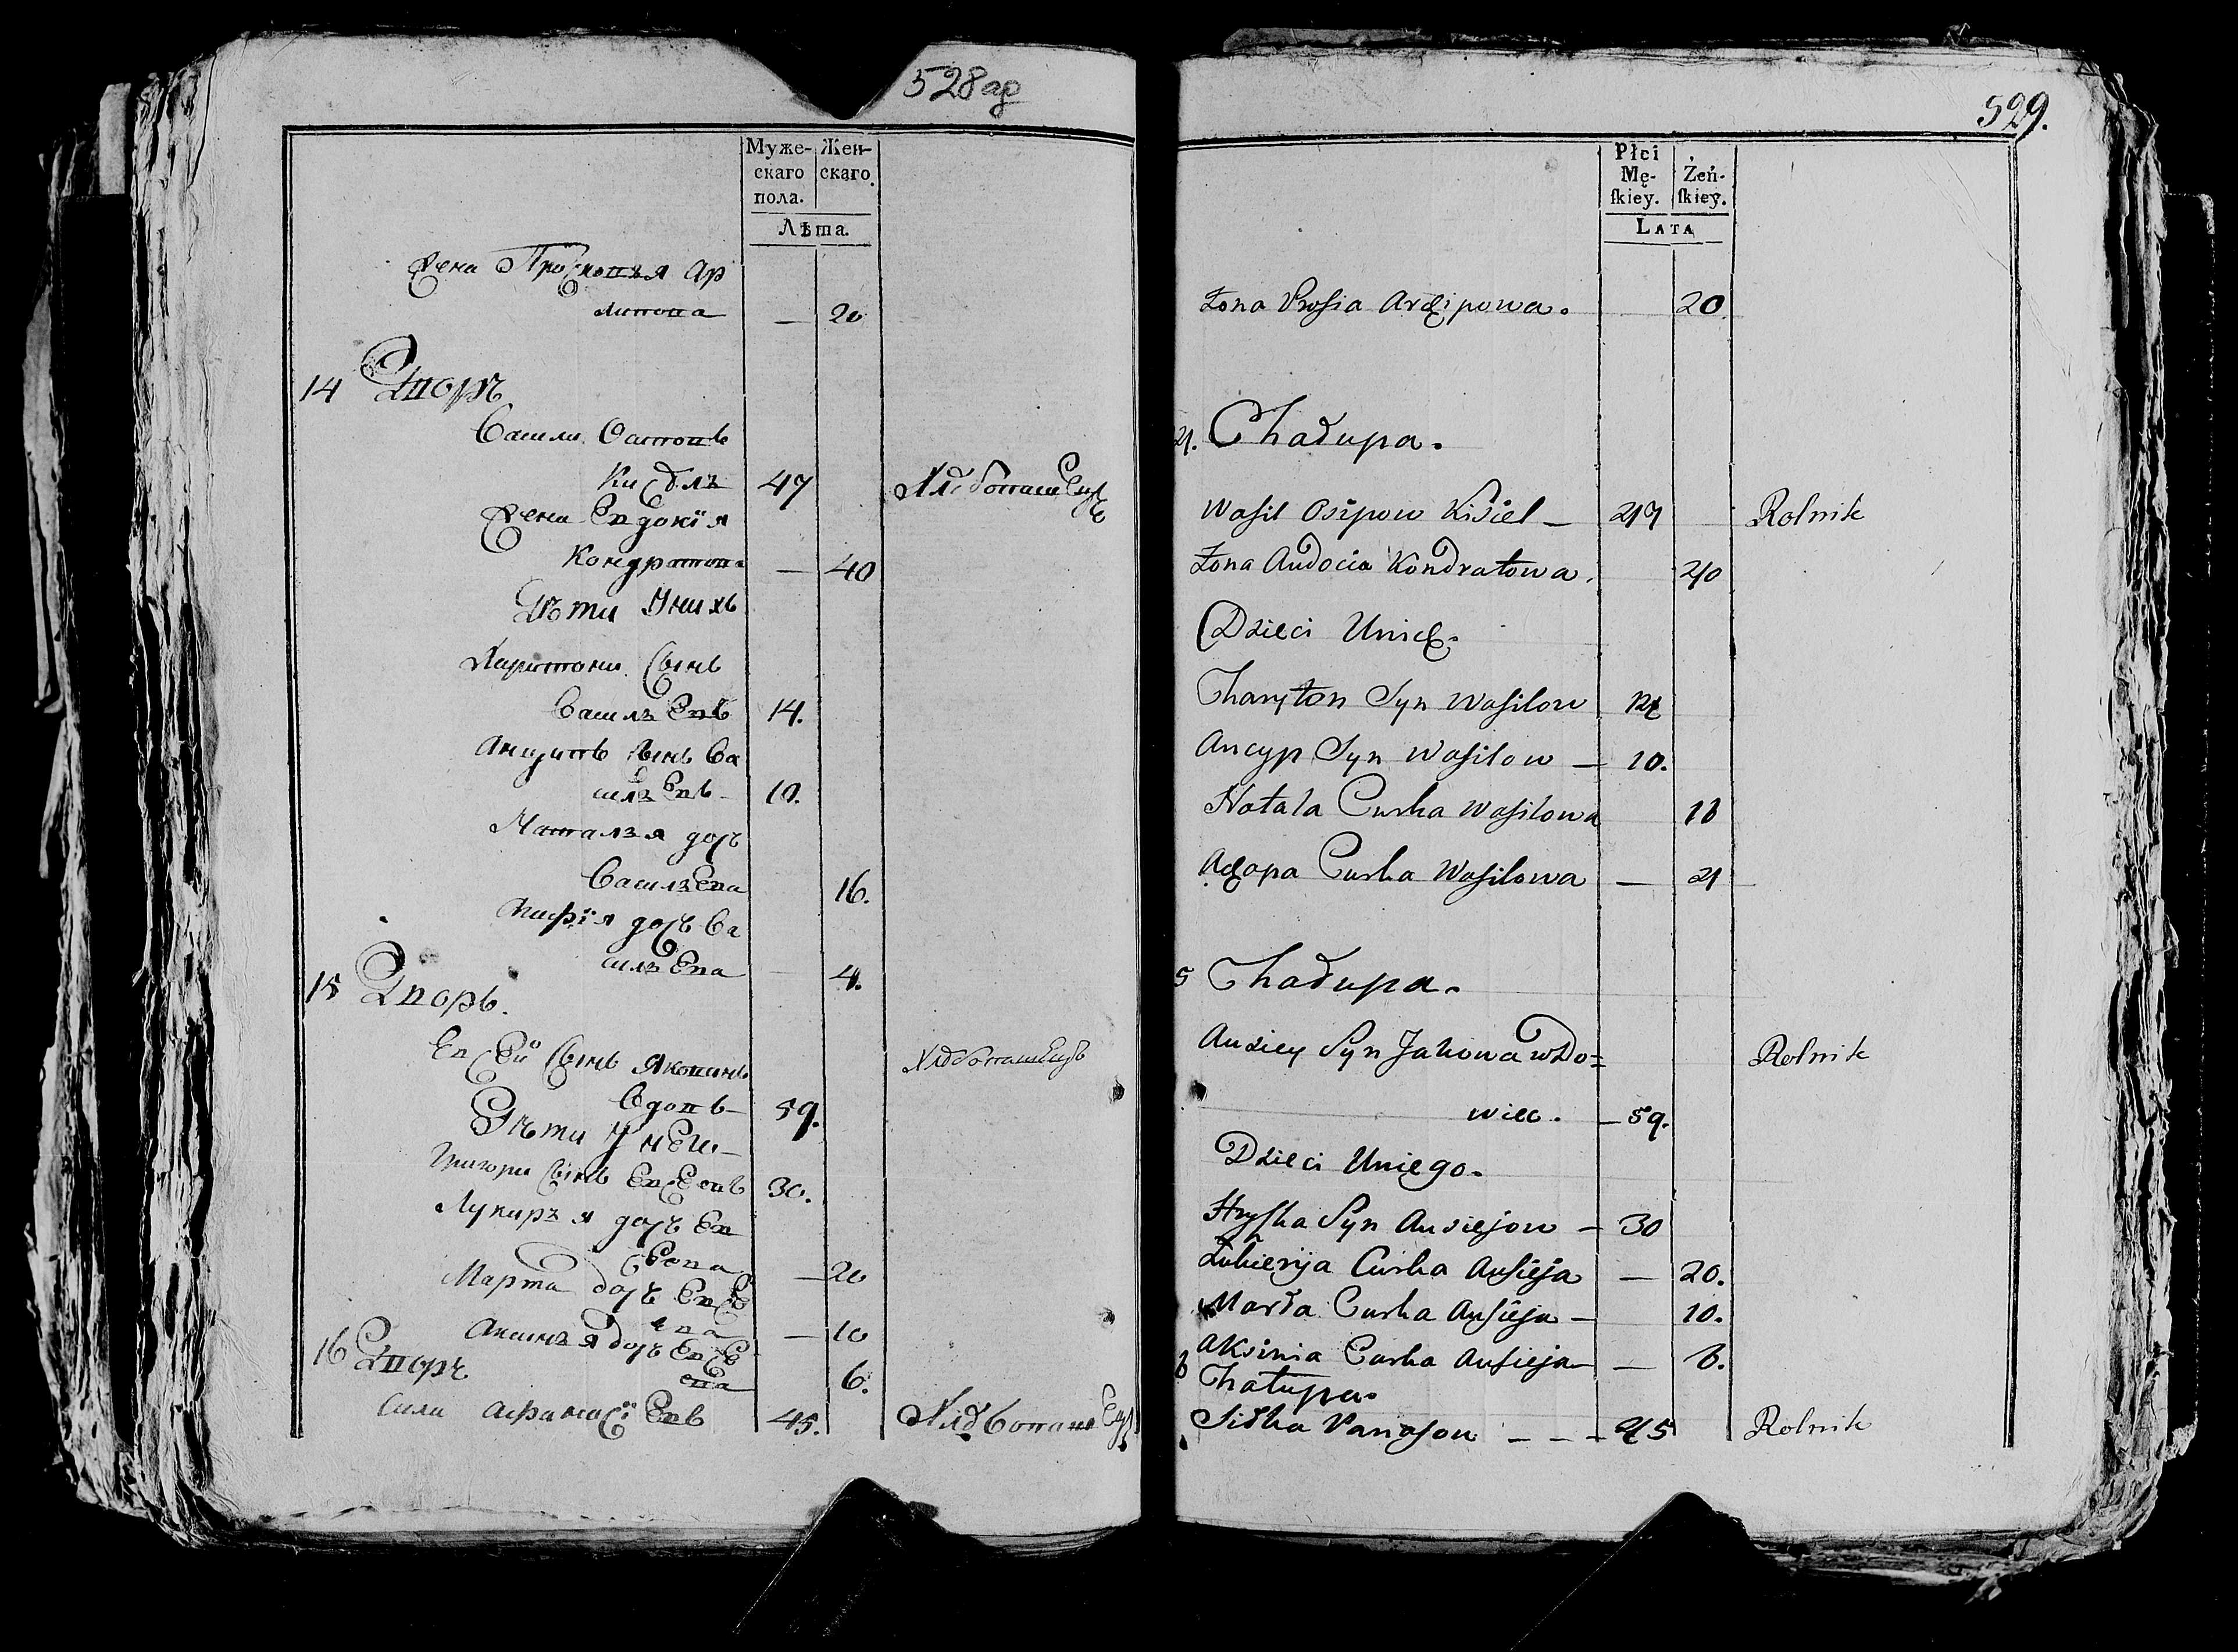 528 ар
Муже-
скаго
пола.
Жен-
скаго.
Лѣта.
Жена Проскопья Ар
липова — 20
14 Дворъ
Василь Осиповъ
Кисѣль 47 Хлебопашецъ
Жена Евдокія
Кондратова — 40
Дѣти У нихъ
Харитонъ Сынъ
Васильевъ 14.
Анцыпъ Сынъ Ва
сильевъ 10.
Наталья дочь
Васильева 16.
дочь Ва
сильева 4.
15 Дворъ.
Евсей Сынъ Яковинъ
Вдовъ — 59. Хлебопашецъ
Дѣти У него —
Григори Сынъ Евсеевъ 30.
Лукирья дочь Ев
сеева — 20
Марта дочь Евсе
ева — 10
Аксинья дочь Евсе
ева 6.
16 Дворъ
Сила Афанасіевъ 45. Хлебопашецъ
529.
Płci
Mę-
ſkiey.
Żeń-
ſkiey.
LATA
Żona Prosia Archipowa. 20
4. Chadupa.
Wasil Osipow Kisiel — 47 Rolnik
Żona Audocia Kondratowa. 40
Dzieci Unich.
Charyton Syn Wasilow 14
Ancyp Syn Wasilow — 10.
Natala Curka Wasilowa 16
Agapa Curka Wasilowa — 4
5 Chadupa.
Ausiey Syn Jakowa wDo= Rolnik
wiec. — 59.
Dzieci Uniego.
Hryſka Syn Ausiejow — 30
Łukierija Curka Ausieja — 20.
Marta Curka Ausieja — 10.
Aksinia Curka Ausieja — 6.
6 Chatupa.
Siłka Panasow — — — 45 Rolnik